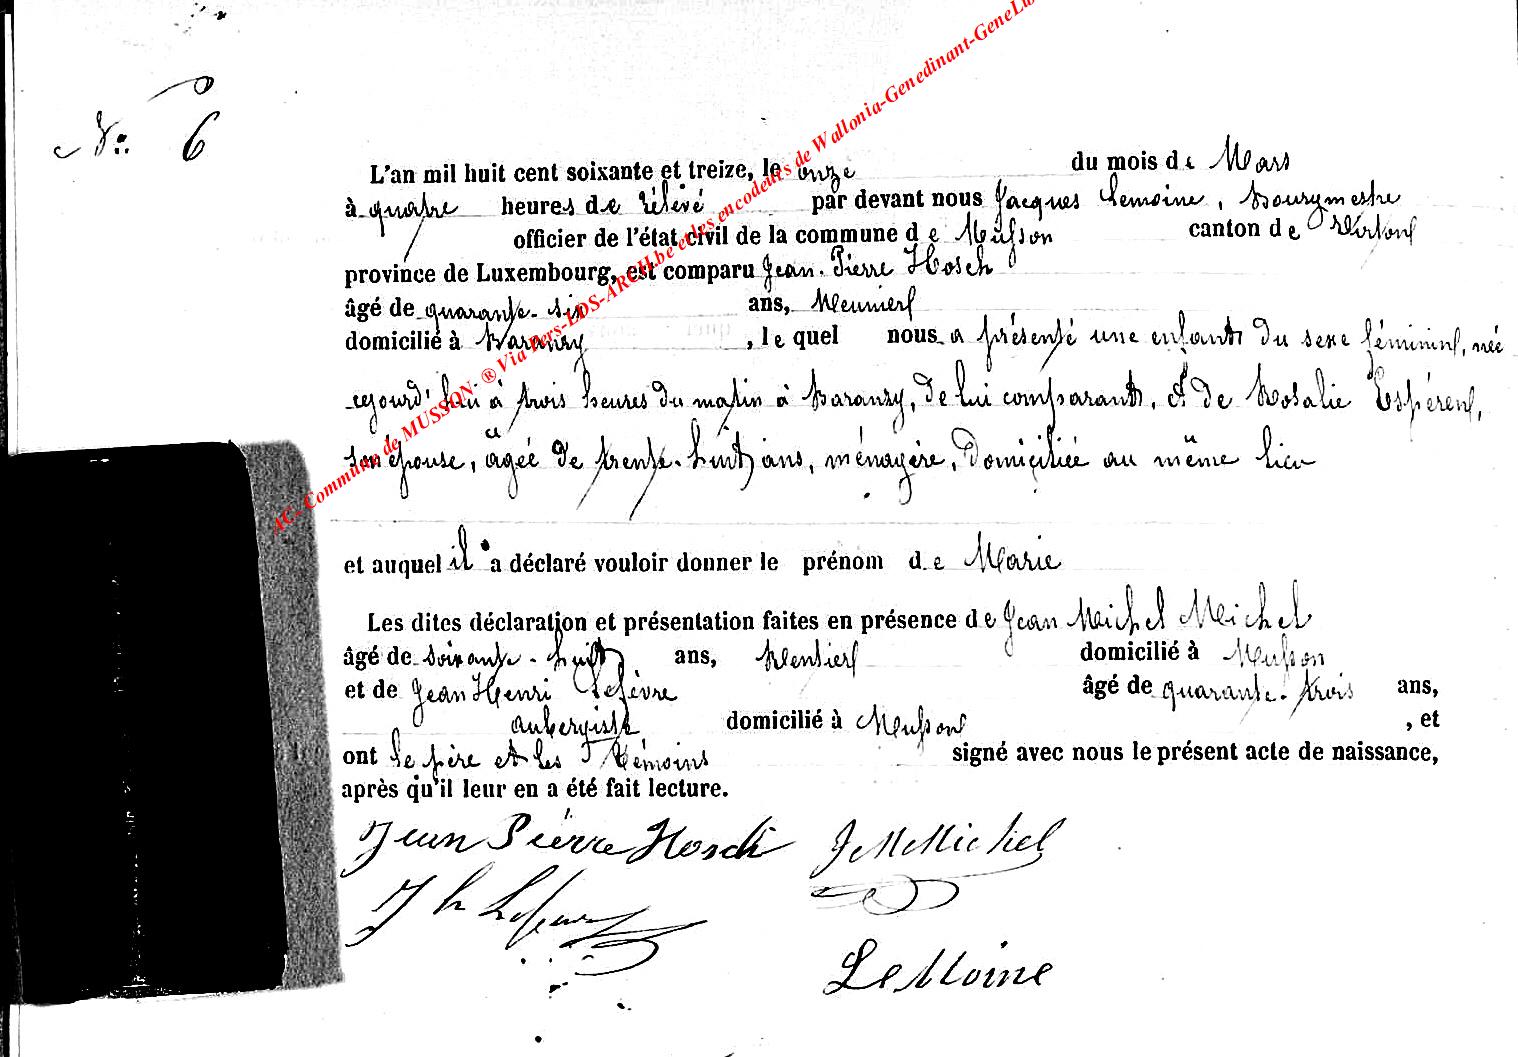 N° 6
L'an mil huit cent soixante et treize, le onze du mois de Mars
à quatre heures de rélévé par devant nous Jacques Lemoine, Bourgmestre
officier de l'état civil de la commune de Musson canton de Virton
province de Luxembourg, est comparu Jean-Pierre Hosch
âgé de quarante-six ans, Meunier
domicilié à Baranzy, le quel nous a présenté une enfant du sexe féminin, née
cejourd'hui à trois heures du matin à Baranzy, de lui comparant, et de Rosalie Espéren,
son épouse, agée de trente-huit ans, ménagère, domiciliée au même lieu
et auquel il a déclaré vouloir donner le prénom de Marie
Les dites déclaration et présentation faites en présence de Jean Michel Michel
âgé de soixante-huit ans, Rentier domicilié à Musson
et de Jean Henri Lefèvre âgé de quarante-trois ans,
aubergiste domicilié à Musson, et
ont le père et les témoins signé avec nous le présent acte de naissance,
après qu'il leur en a été fait lecture.
Jean Pierre Hosch J M Michel
J h Lefevre
LeMoine
AC- Commune de MUSSON- ® Via Pers-LDS-ARCH.be et les encodeurs de Wallonia-Genedinant-GeneLux